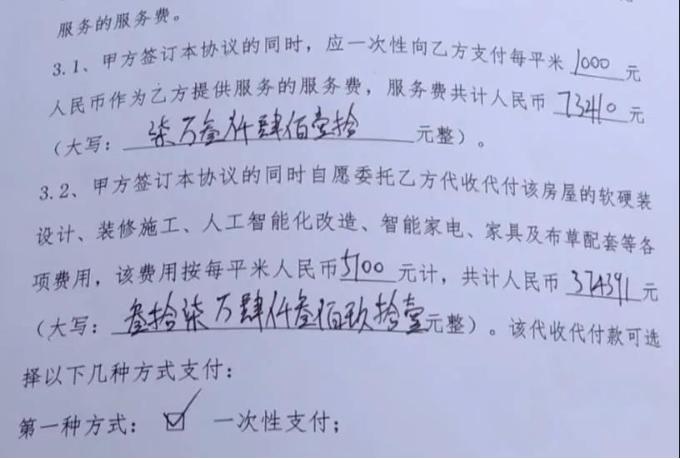 服务的服务费。
3.1、甲方签订本协议的同时，应一次性向乙方支付每平米 1000 元
人民币作为乙方提供服务的服务费，服务费共计人民币 73410 元
（大写：柒万叁仟肆佰壹拾 元整）。
3.2、甲方签订本协议的同时自愿委托乙方代收代付该房屋的软硬装
设计、装修施工、人工智能化改造、智能家电、家具及布草配套等各
项费用，该费用按每平米人民币 5100 元计，共计人民币 374391 元
（大写：叁拾柒万肆仟叁佰玖拾壹元整）。该代收代付款可选
择以下几种方式支付：
第一种方式：☑ 一次性支付；